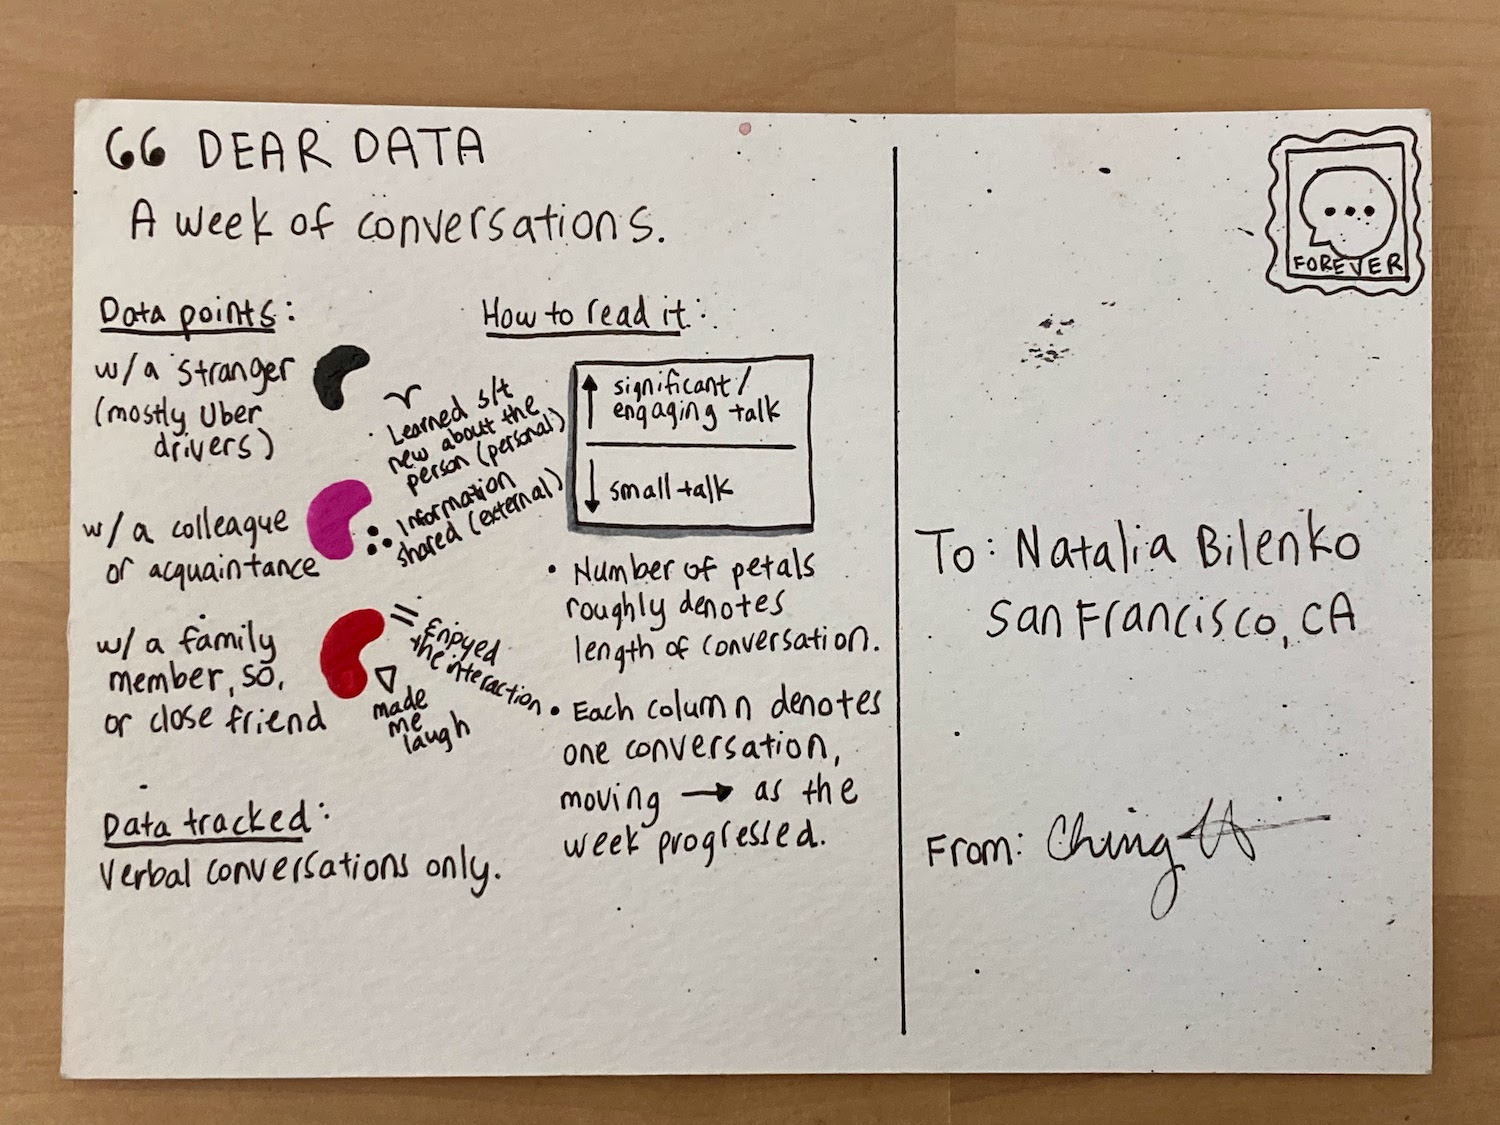 66 DEAR DATA
A week of conversations.
Data points:
w/a stranger
(mostly Uber
drivers)
w/a colleague
or acquaintance
w/a family
member, SO,
or close friend
Learned s/t
new about the
person (personal)
Information
shared (external)
= Enjoyed
the interaction
made
me
laugh
Data tracked:
Verbal conversations only.
How to read it:
↑ significant/
engaging talk
↓ small talk
• Number of petals
roughly denotes
length of conversation.
• Each column denotes
one conversation,
moving → as the
week progressed.
FOREVER
To: Natalia Bilenko
San Francisco, CA
From: Ching